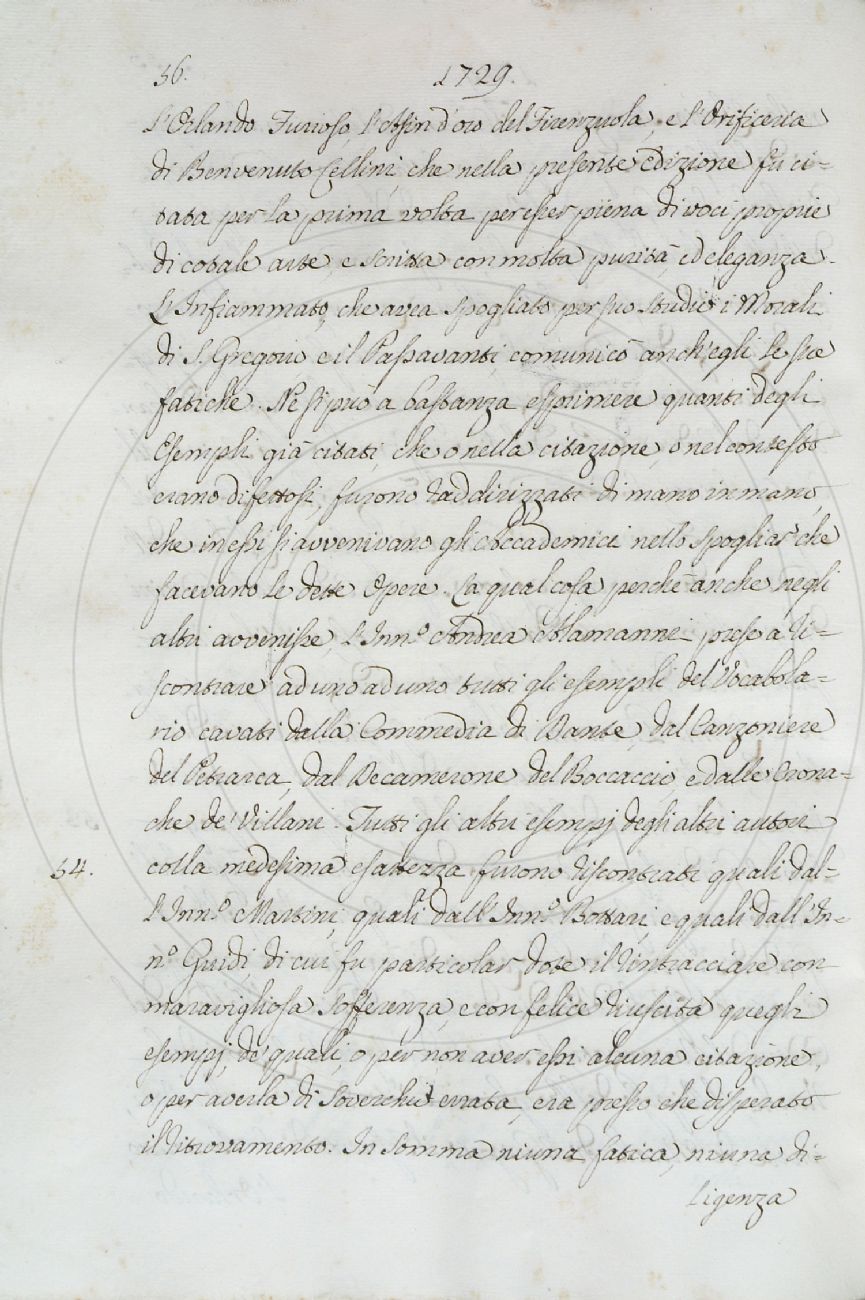 56.
1729.
L'Orlando Furioso, l'Asin d'oro del Firenzuola, e l'Orificeria
di Benvenuto Cellini, che nella presente Edizione fu ci=
tata per la prima volta per esser piena di voci proprie
di cotale arte, e scritta con molta purità, ed eleganza.
L'Infiammato, che avea spogliato per suo studio i Morali
di S. Gregorio e il Passavanti, comunicò anch'egli le sue
fatiche. Ne si può a bastanza esprimere quanti degli
Esempli già citati, che o nella citazione, o nel contesto
erano difettosi, furono raddirizzati di mano in mano,
che in essi si avvenivano gli Accademici nello spogliar che
facevano le dette Opere. La qual cosa perchè anche negli
altri avvenisse, l'Inn.º Andrea Alamanni prese a ri=
scontrare ad uno ad uno tutti gli esempli del Vocabola=
rio cavati dalla Commedia di Dante, dal Canzoniere
del Petrarca, dal Decamerone del Boccaccio, e dalle Crona=
che de' Villani. Tutti gli altri esempj degli altri autori
54. colla medesima esattezza furono riscontrati quali dal=
l'Inn.º Martini, quali dall'Inn.º Bottari, e quali dall'In=
n.º Guidi, di cui fu particolar dote il rintracciare con
maravigliosa sofferenza, e con felice riuscita quegli
esempj, de' quali, o per non aver essi alcuna citazione,
o per averla di soverchio errata, era presso che disperato
il ritrovamento. In somma niuna fatica, niuna di=
ligenza